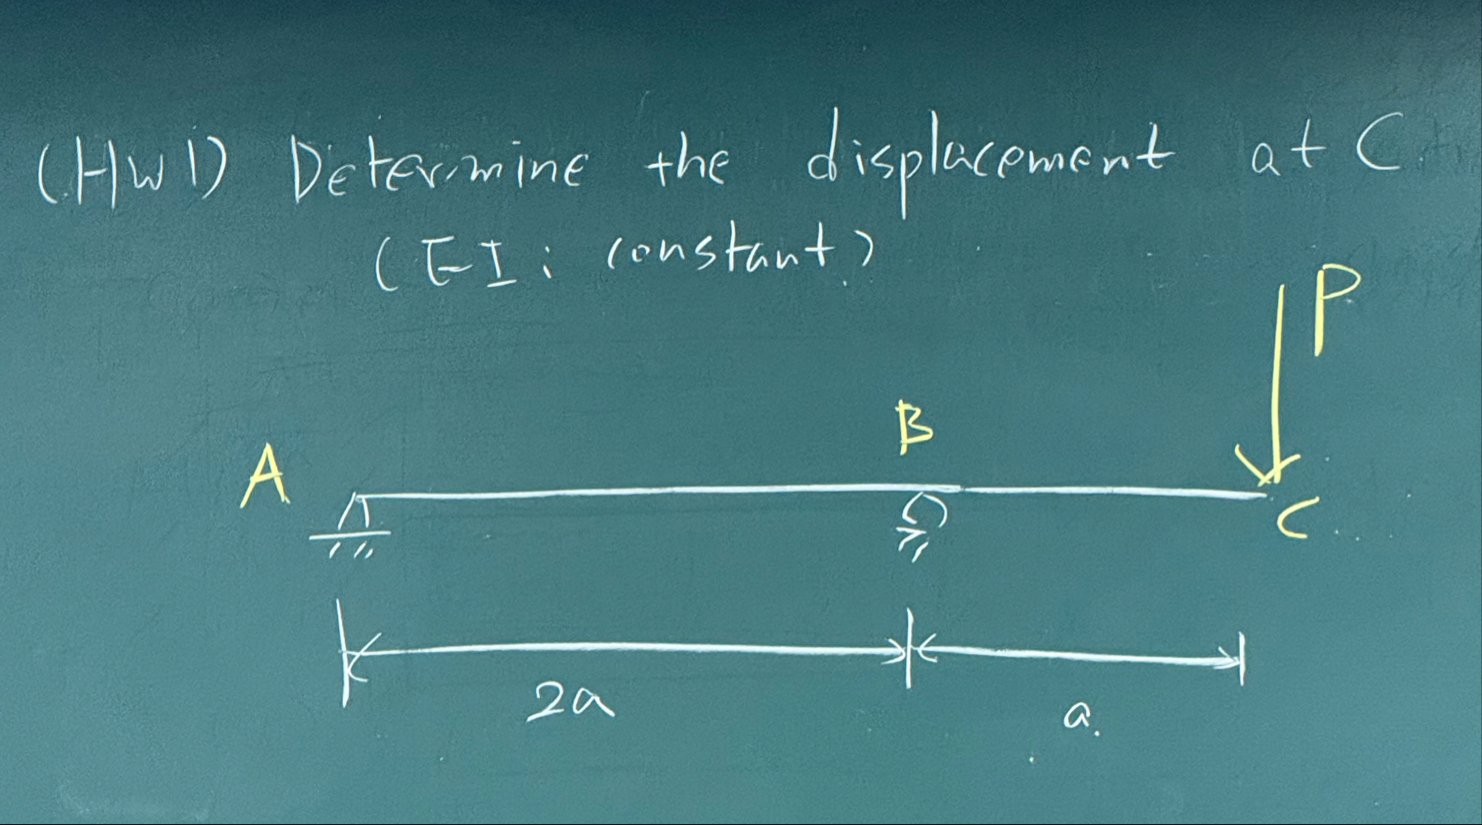 (HW1) Determine the displacement at C
(EI: constant)
P
B
A
C
2a
a.